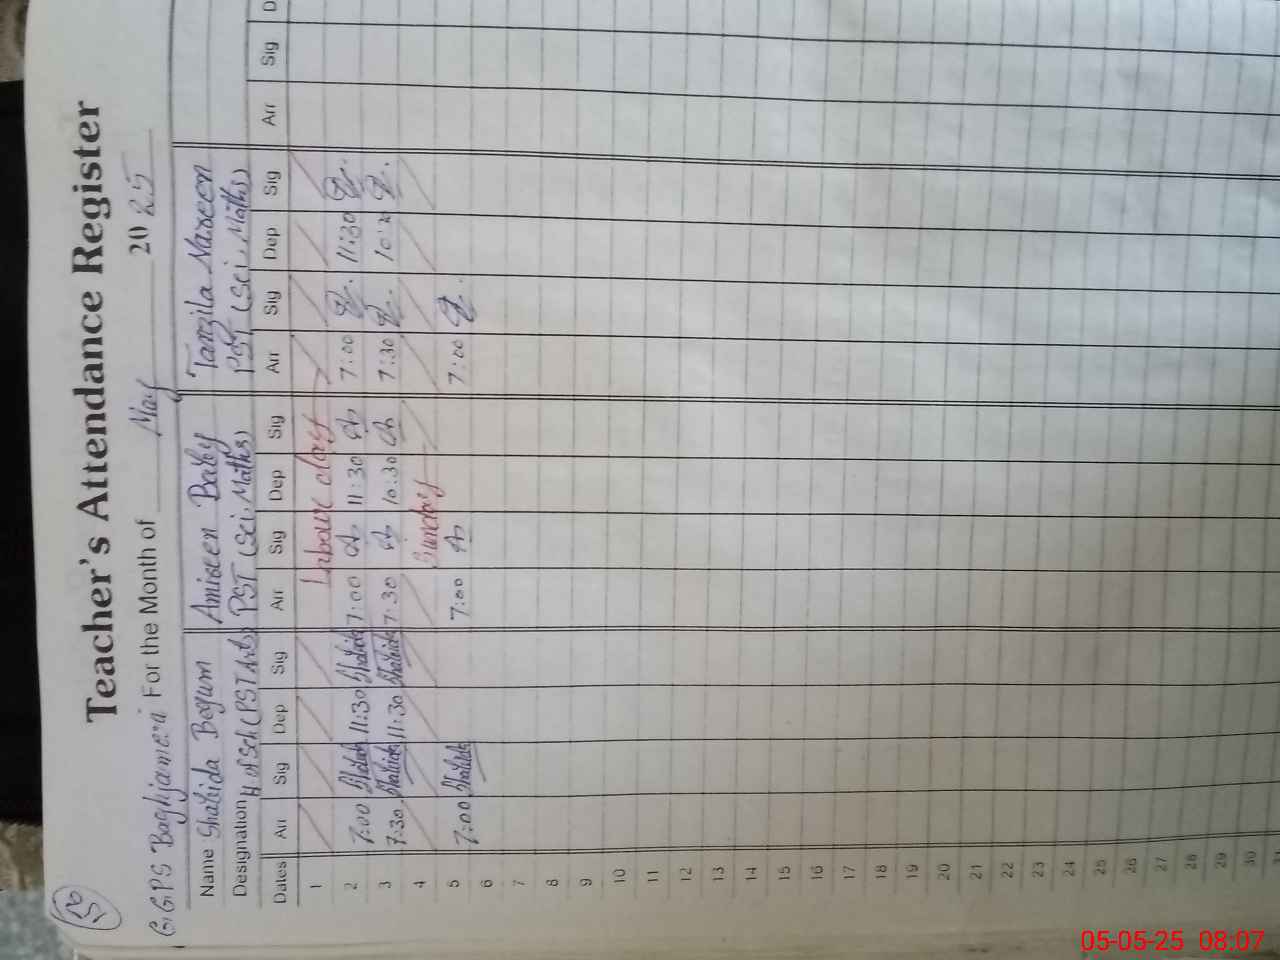 Teacher's Attendance Register
GGPS Baghjamera For the Month of May 2025
Name Shahida Begum Amireen Baby Tanzila Nasreen
Designation H. of Sch (PST Arts) PST (Sci. Maths) PST (Sci. Maths)
Dates Arr Sig Dep Sig Arr Sig Dep Sig Arr Sig Dep Sig Arr Sig D
1 Labour day
2 7:00 Shahida 11:30 Shahida 7:00 11:30 7:00 11:30
3 7:30 Shahida 11:30 Shahida 7:30 10:30 7:30
4 Sunday
5 7:00 Shahida 7:00 7:00
6
7
8
9
10
11
12
13
14
15
16
17
18
19
20
21
22
23
24
25
26
27
28
29
30
31
05-05-25 08:07